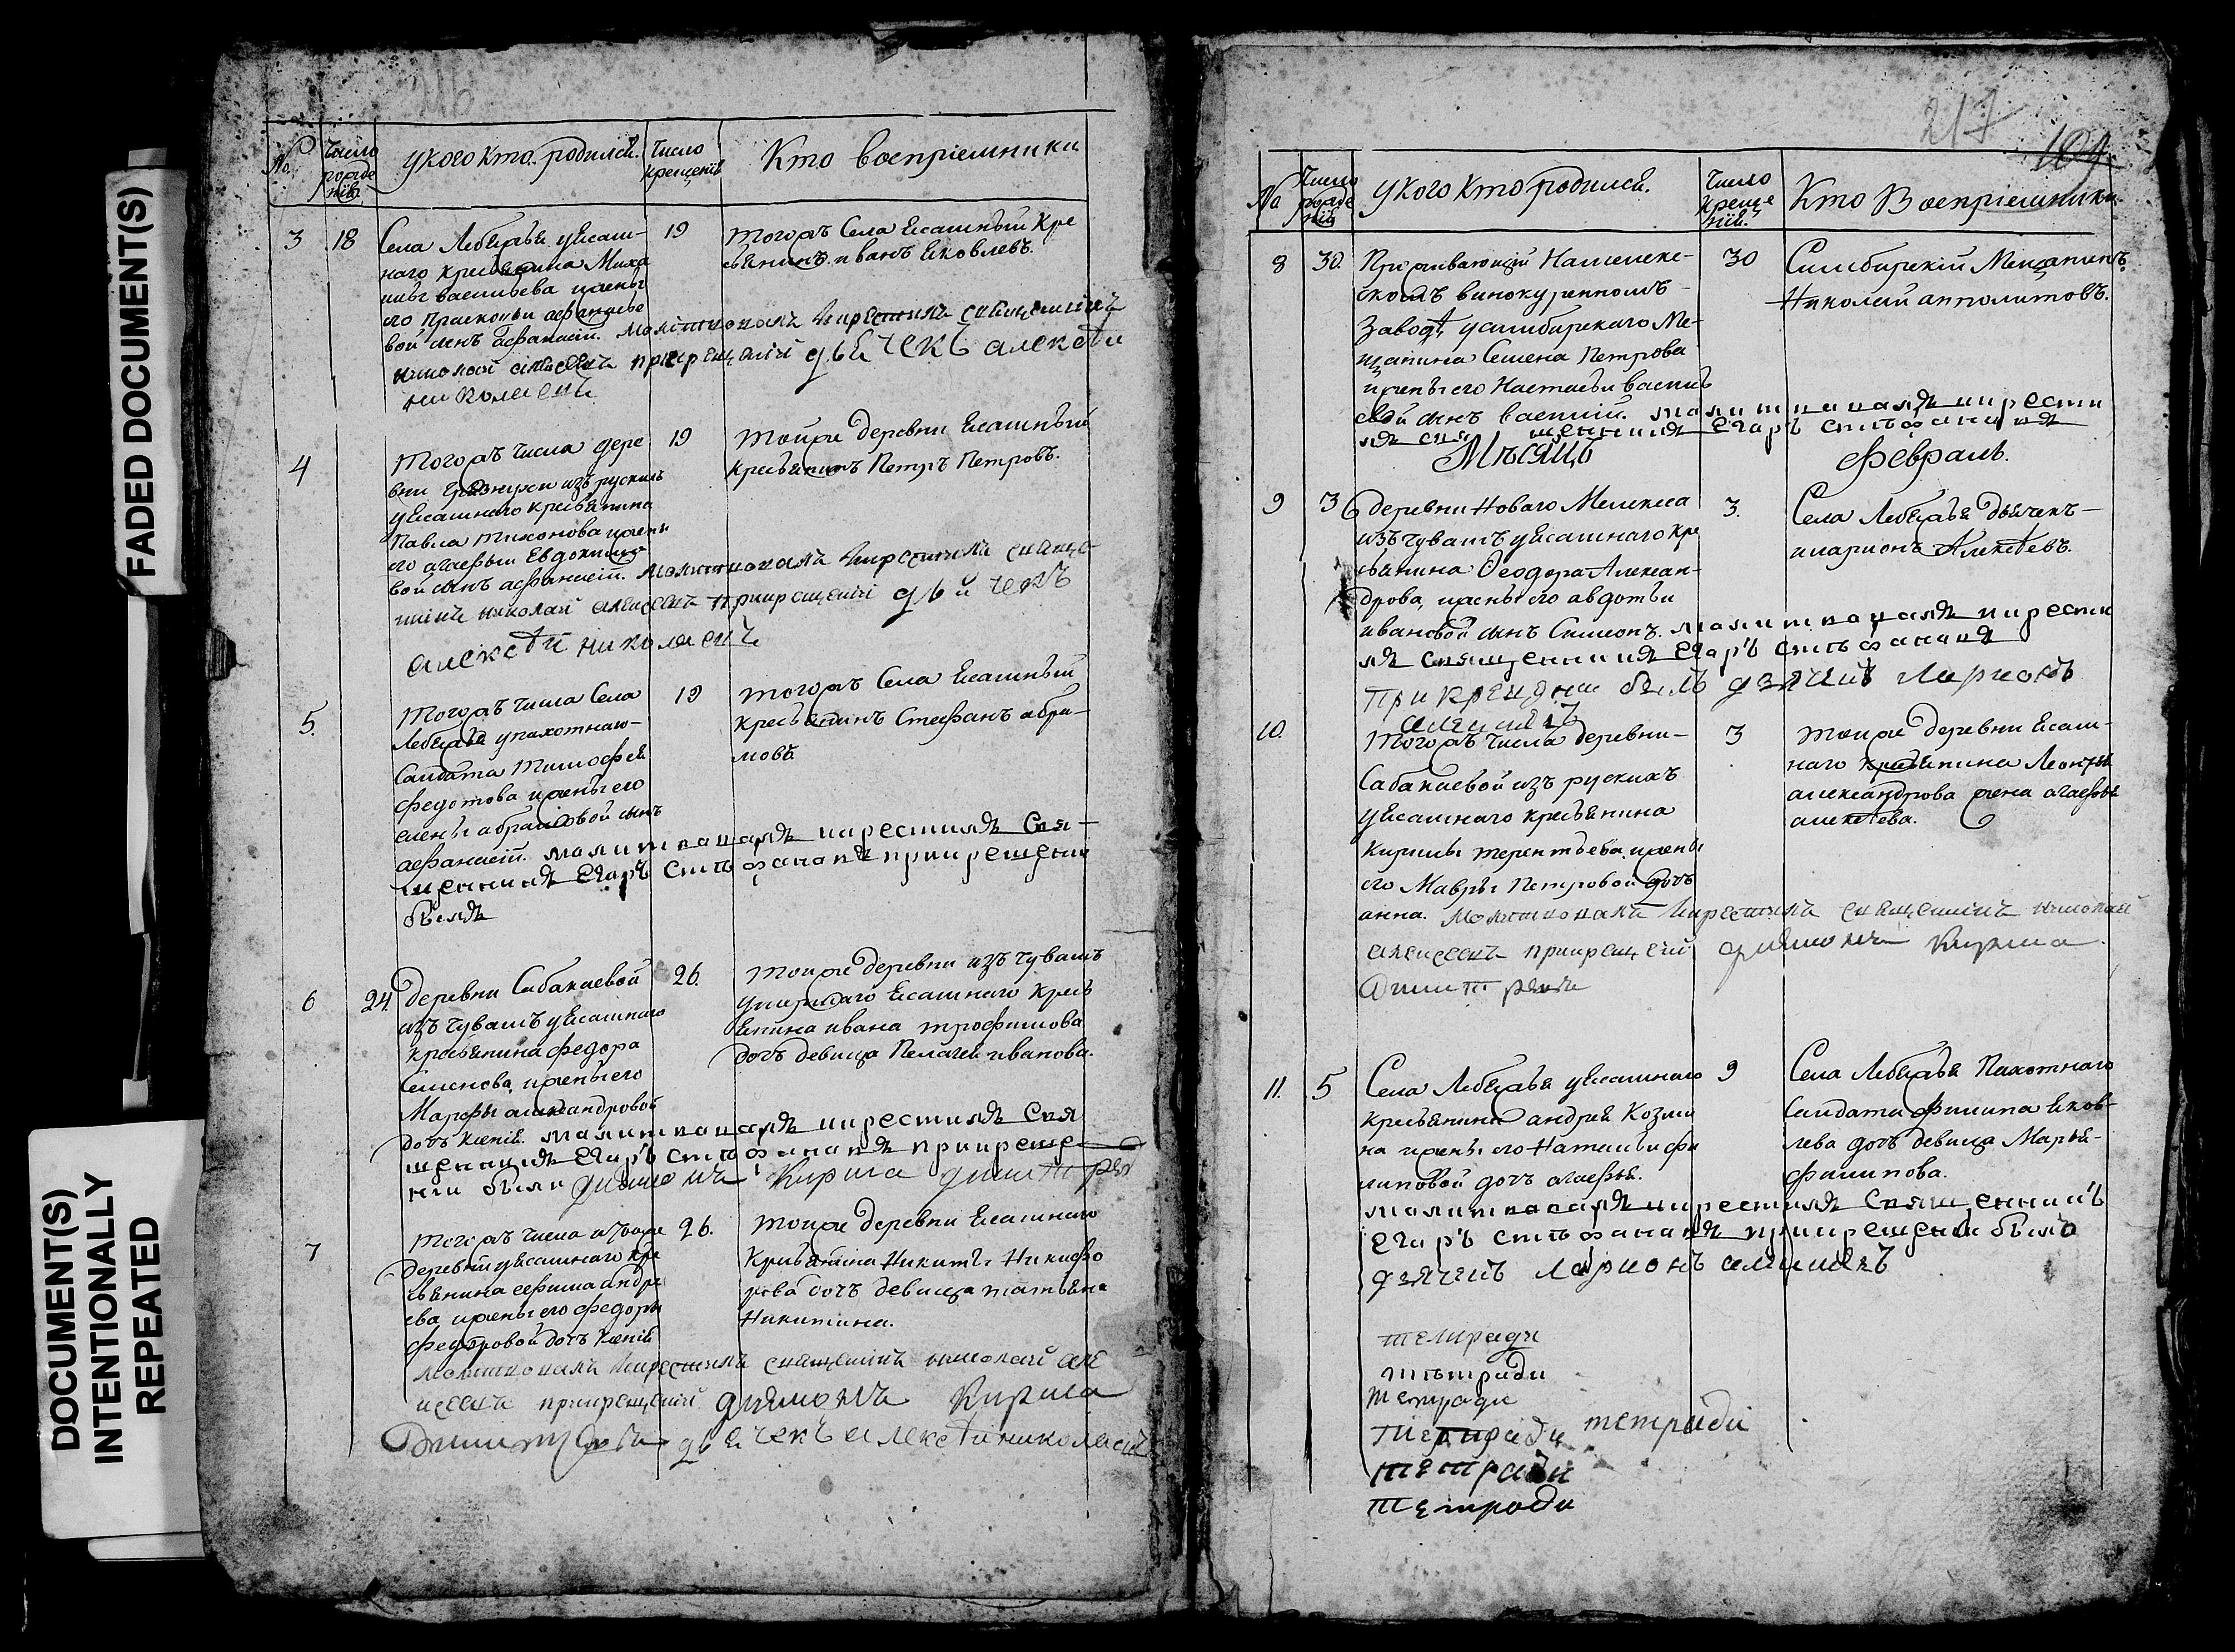 FADED DOCUMENT(S)
DOCUMENT(S)
INTENTIONALLY
REPEATED
216
№ Число рожде нія
у кого кто родился.
Число крещенія
Кто воспріемники
3 18 Села Лебяжья у ясаш-
наго крестьянина Миха
илы васильева и жены
его Прасковьи афанасье
вой сынъ афанасій. молитвовалъ и крестилъ священникъ
николай алексеевъ при крещеніи дьячекъ алексѣй
николаевъ
19 тогожъ Села ясашный кре
стьянинъ иванъ яковлевъ.
4 Тогожъ числа дере
вни изъ рускихъ
у ясашнаго крестьянина
Павла тихонова и жены
его агафьи Евдокимо
вой сынъ афанасій. молитвовалъ и крестилъ священ
никъ николай алексеевъ при крещеніи дьячекъ
алексѣй николаевъ
19 тойже деревни ясашный
крестьянинъ Петръ Петровъ.
5. Тогожъ числа Села
Лебяжья у пахотнаго
Салдата тимофея
федотова и жены его
елены абрамовой сынъ
афанасій. молитвовалъ и крестилъ Свя-
щенникъ егаръ стѣфановъ при крещени
былъ
19 тогожъ Села ясашный
крестьянинъ Стефанъ абра-
мовъ
6 24 деревни Сабакаевой
изъ чувашъ у ясашнаго
крестьянина федора
Семенова и жены его
Марфы александровой
дочь ксенія. молитвовалъ и крестилъ Свя
щенникъ егаръ стѣфановъ при креще
нии были дьяконъ кирила дмитре
26. тойже деревни изъ чувашъ
умершаго ясашнаго кресть
янина ивана трофимова
дочь девица Пелагея иванова.
7 Тогожъ числа изъ тойже
деревни у ясашнаго кре
стьянина ефима андре
ева и жены его федоры
федоровой дочь ксенія
молитвовалъ и крестилъ священникъ николай але
ксеевъ при крещеніи дьяконъ кирила
дьячекъ алексѣй николаевъ
26. тойже деревни ясашнаго
крестьянина Никиты Никифо
рова дочь девица татьяна
Никитина.
217
109
№ Число рожде нія
у кого кто родился.
Число креще нія.
Кто Воспріемники.
8 30. Проживающій на мелеке-
скомъ винокуренномъ
заводѣ у симбирскаго Ме-
щанина Семена Петрова
и жены его Настасьи василь
евой сынъ василій. молитвовалъ и крести
лъ священникъ егаръ стѣфановъ
30 Симбирскій Мещанинъ
Николай апполитовъ.
Мѣсяцъ февраль.
9 3 деревни Новаго Мелекеса
изъ чувашъ у ясашнаго кре
стьянина Ѳеодора Алексан-
дрова, и жены его авдотьи
ивановой сынъ Симеонъ. молитвовалъ и крести
лъ священникъ егаръ стѣфановъ
при крещени былъ дячекъ ларионъ
алексеевъ
3. Села Лебяжья дьячекъ
иларионъ Алексѣевъ.
10. Тогожъ числа деревни
Сабакаевой изъ рускихъ
у ясашнаго крестьянина
Кирилы терентьева и жены
его Мавры Петровой дочь
анна. молитвовалъ и крестилъ священникъ николай
алексеевъ при крещеніи дьяконъ кирила
3 тойже деревни ясаш-
наго крестьянина Леонтья
александрова жена агафья
алексѣева.
11. 5 Села Лебяжья у ясашнаго
крестьянина андрея Козми
на и жены его Натальи фи
липовой дочь агафья.
молитвовалъ и крестилъ Священникъ
егаръ стѣфановъ при крещени былъ
дячекъ ларионъ алексеевъ
9 Села Лебяжья Пахотнаго
Салдата филипа яков-
лева дочь девица Марья
филипова.
тетради
тѣтради
тетради
тетради тетради
тетради
тетради